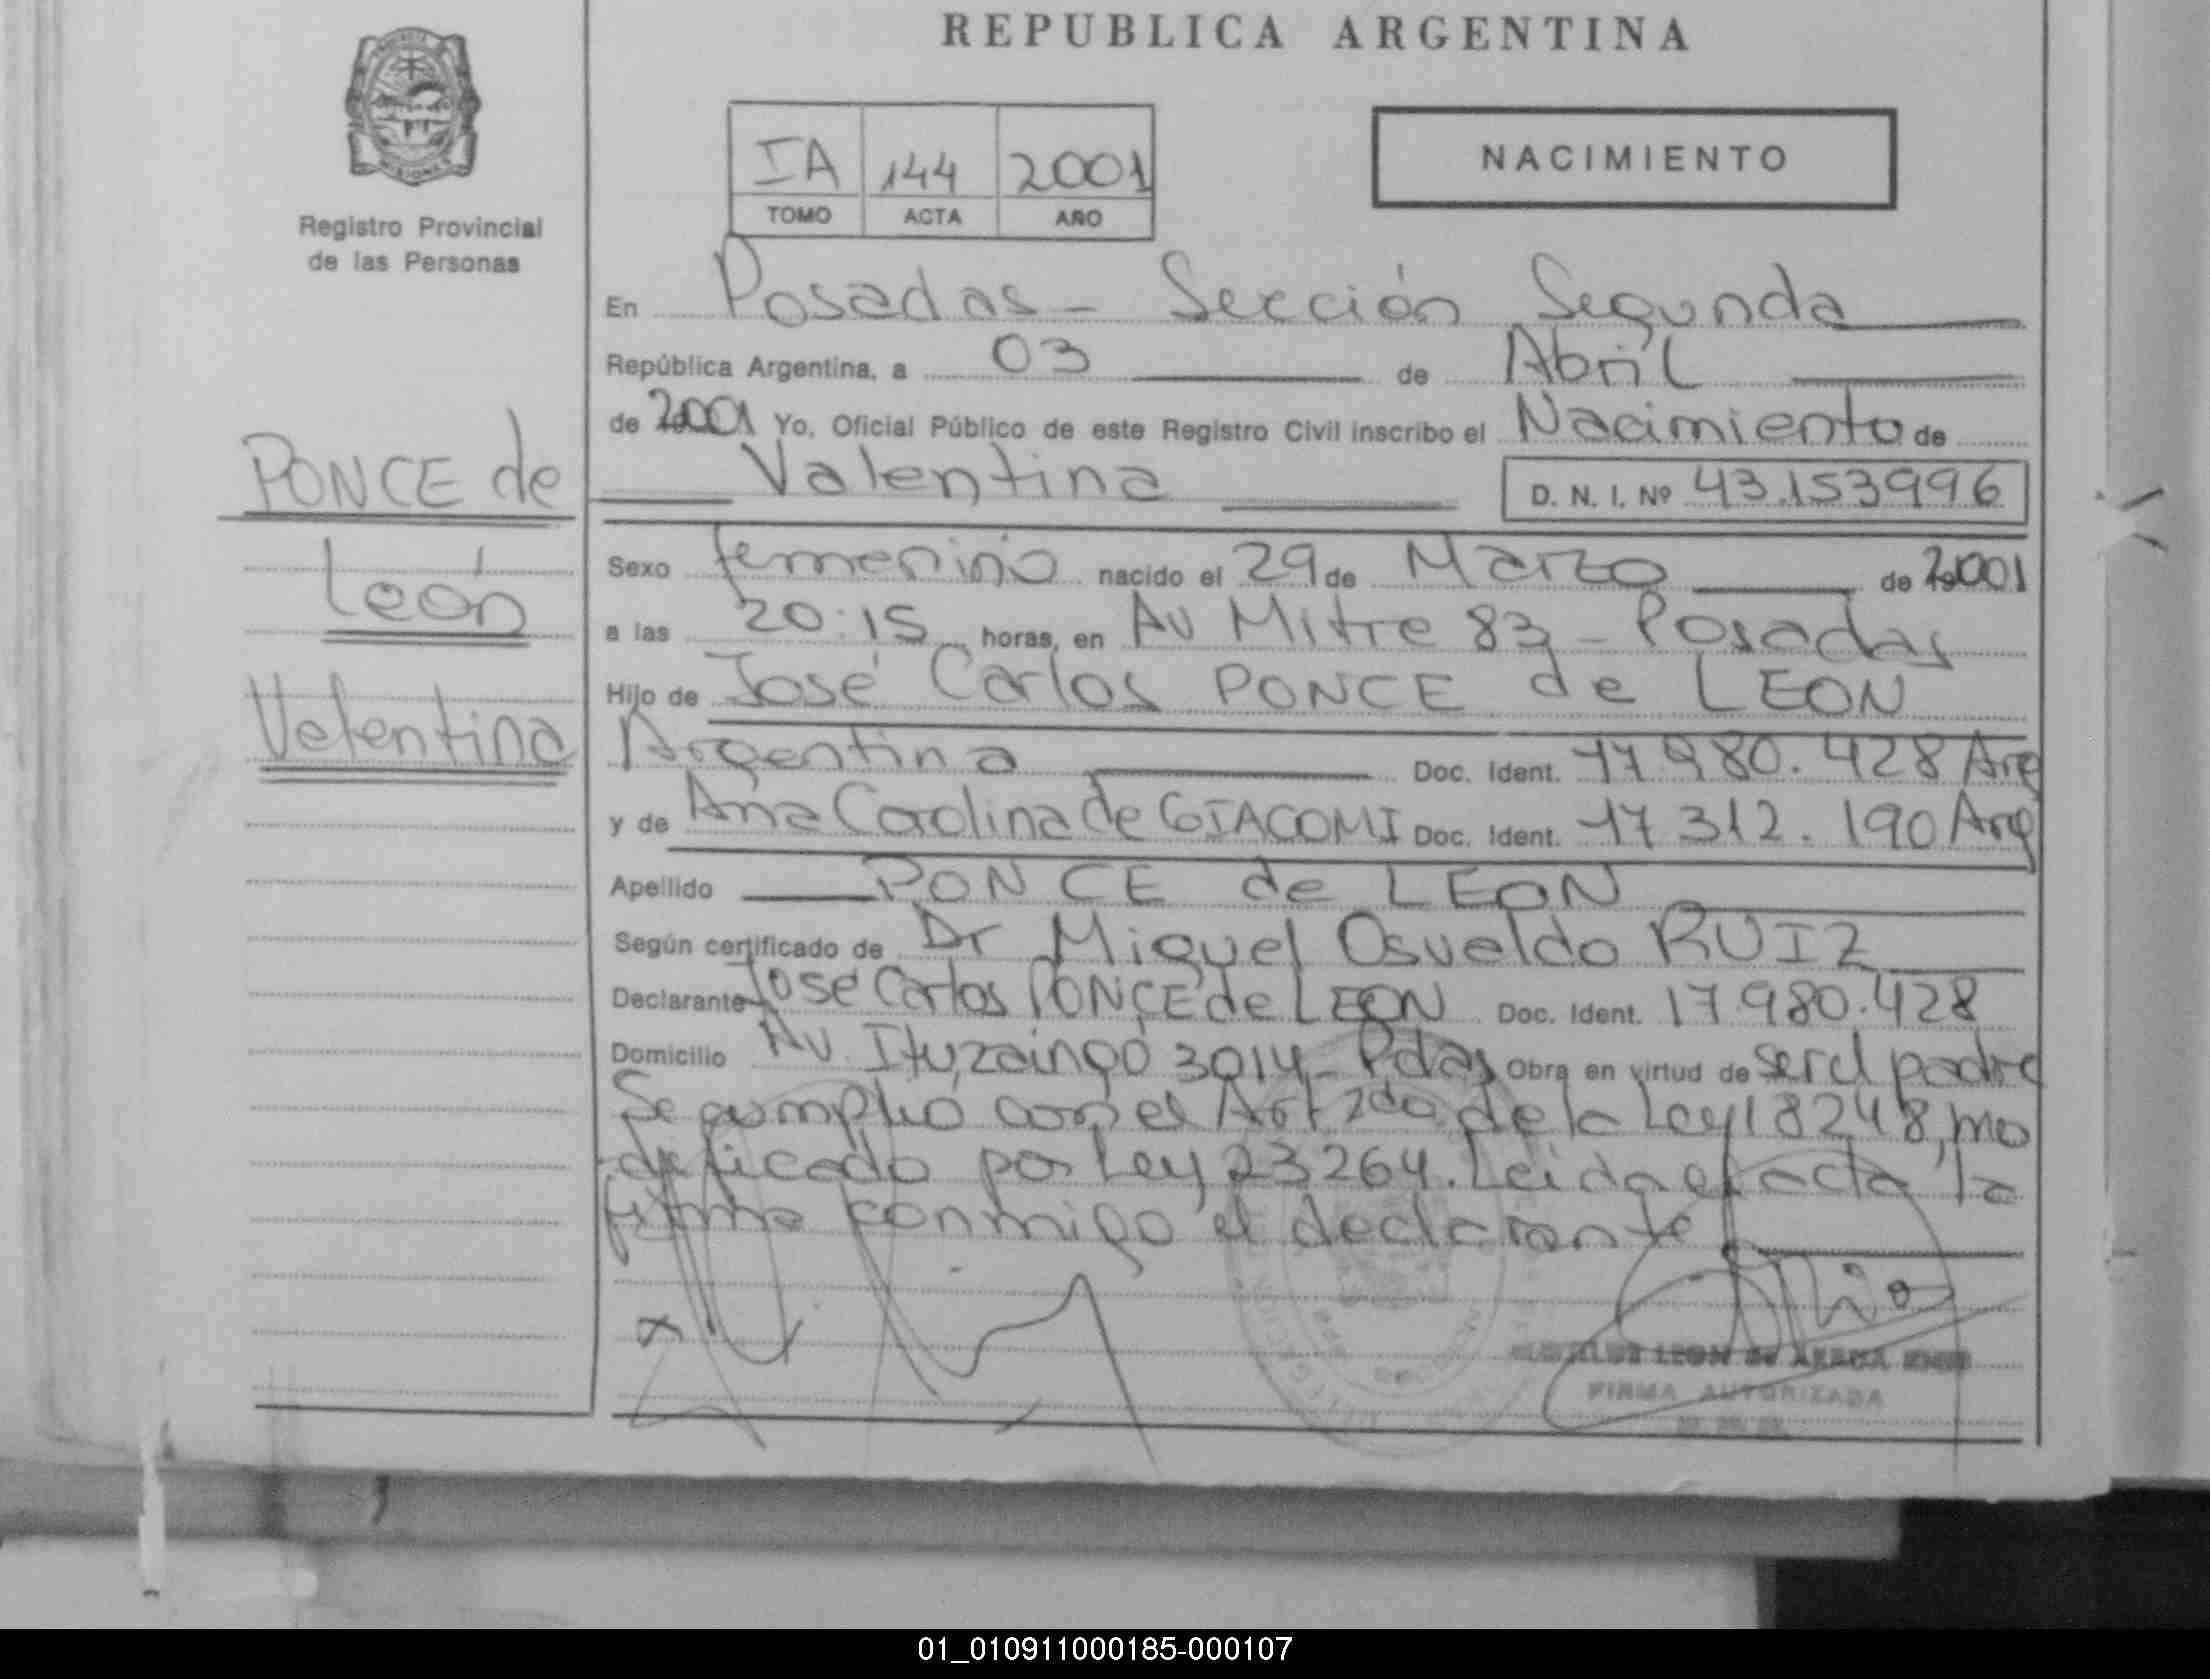 REPUBLICA ARGENTINA
PROVINCIA DE MISIONES
Registro Provincial
de las Personas
IA 144 2001
TOMO ACTA AÑO
NACIMIENTO
En Posadas - Sección Segunda
República Argentina, a 03 de Abril
de 2001 Yo, Oficial Público de este Registro Civil inscribo el Nacimiento de
Valentina D. N. I. Nº 43.153996
PONCE de
León
Valentina
Sexo femenino nacido el 29 de Marzo de 2001
a las 20:15 horas, en Av Mitre 83 - Posadas
Hijo de José Carlos PONCE de LEON
Argentina Doc. Ident. 17.980.428 Arg
y de Ana Carolina de GIACOMI Doc. Ident. 17 312. 190 Arg
Apellido PONCE de LEON
Según certificado de Dr Miguel Osvaldo RUIZ
Declarante José Carlos PONCE de LEON Doc. Ident. 17.980.428
Domicilio Av. Ituzaingó 3014 - Pdas Obra en virtud de ser el padre
Se cumplió con el Art 2do de la Ley 18248, mo
dificado por Ley 23264. Leida el acta la
firma conmigo el declarante
x
LEON de
FIRMA AUTORIZADA
01_010911000185-000107